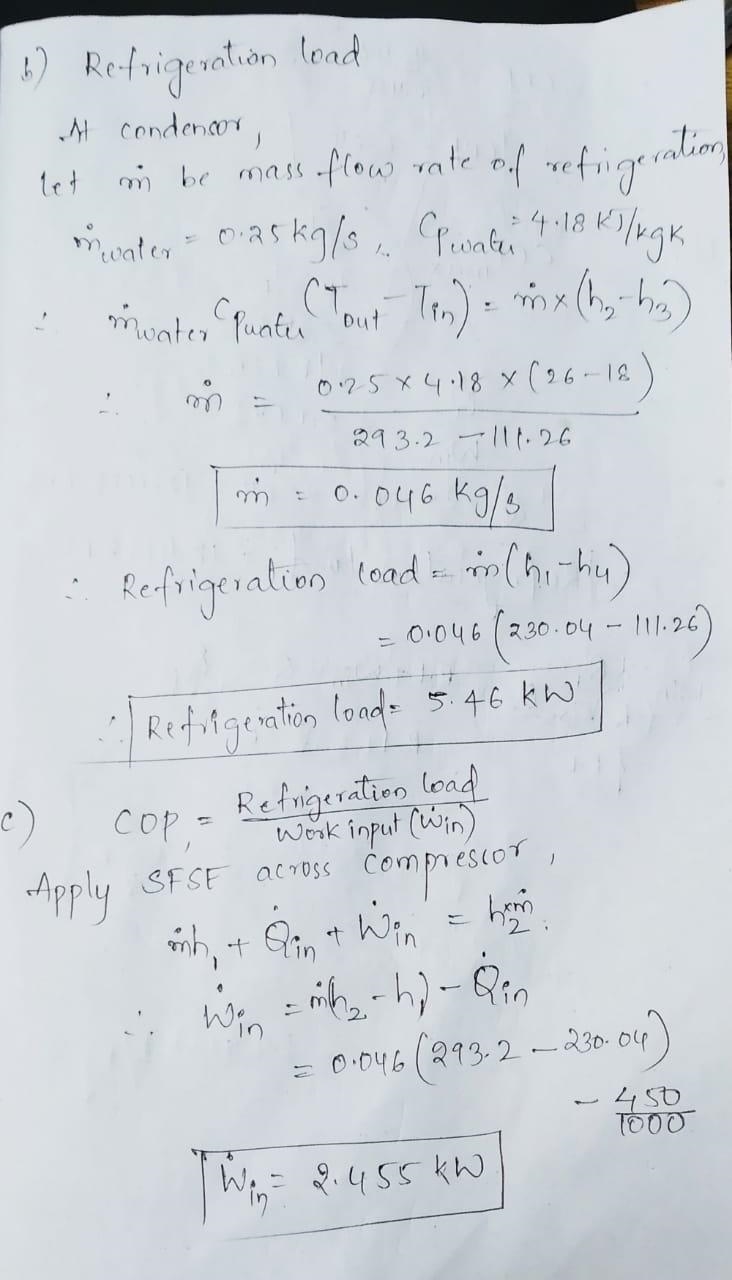 b) Refrigeration load
At condensor,
let ṁ be mass flow rate of refrigeration,
ṁwater = 0.25 kg/s, Cpwater = 4.18 KJ/kgK
∴ ṁwater Cpwater (Tout - Tin) = ṁ × (h2 - h3)
∴ ṁ = 0.25 × 4.18 × (26 - 18) / 293.2 - 111.26
ṁ = 0.046 kg/s
∴ Refrigeration load = ṁ (h1 - h4)
= 0.046 (230.04 - 111.26)
∴ Refrigeration load = 5.46 kW
c) COP = Refrigeration load / Work input (Ẇin)
Apply SFSE across compressor,
ṁh1 + Q̇in + Ẇin = h2 × ṁ.
∴ Ẇin = ṁ(h2 - h1) - Q̇in
= 0.046 (293.2 - 230.04)
- 450/1000
Ẇin = 2.455 kW